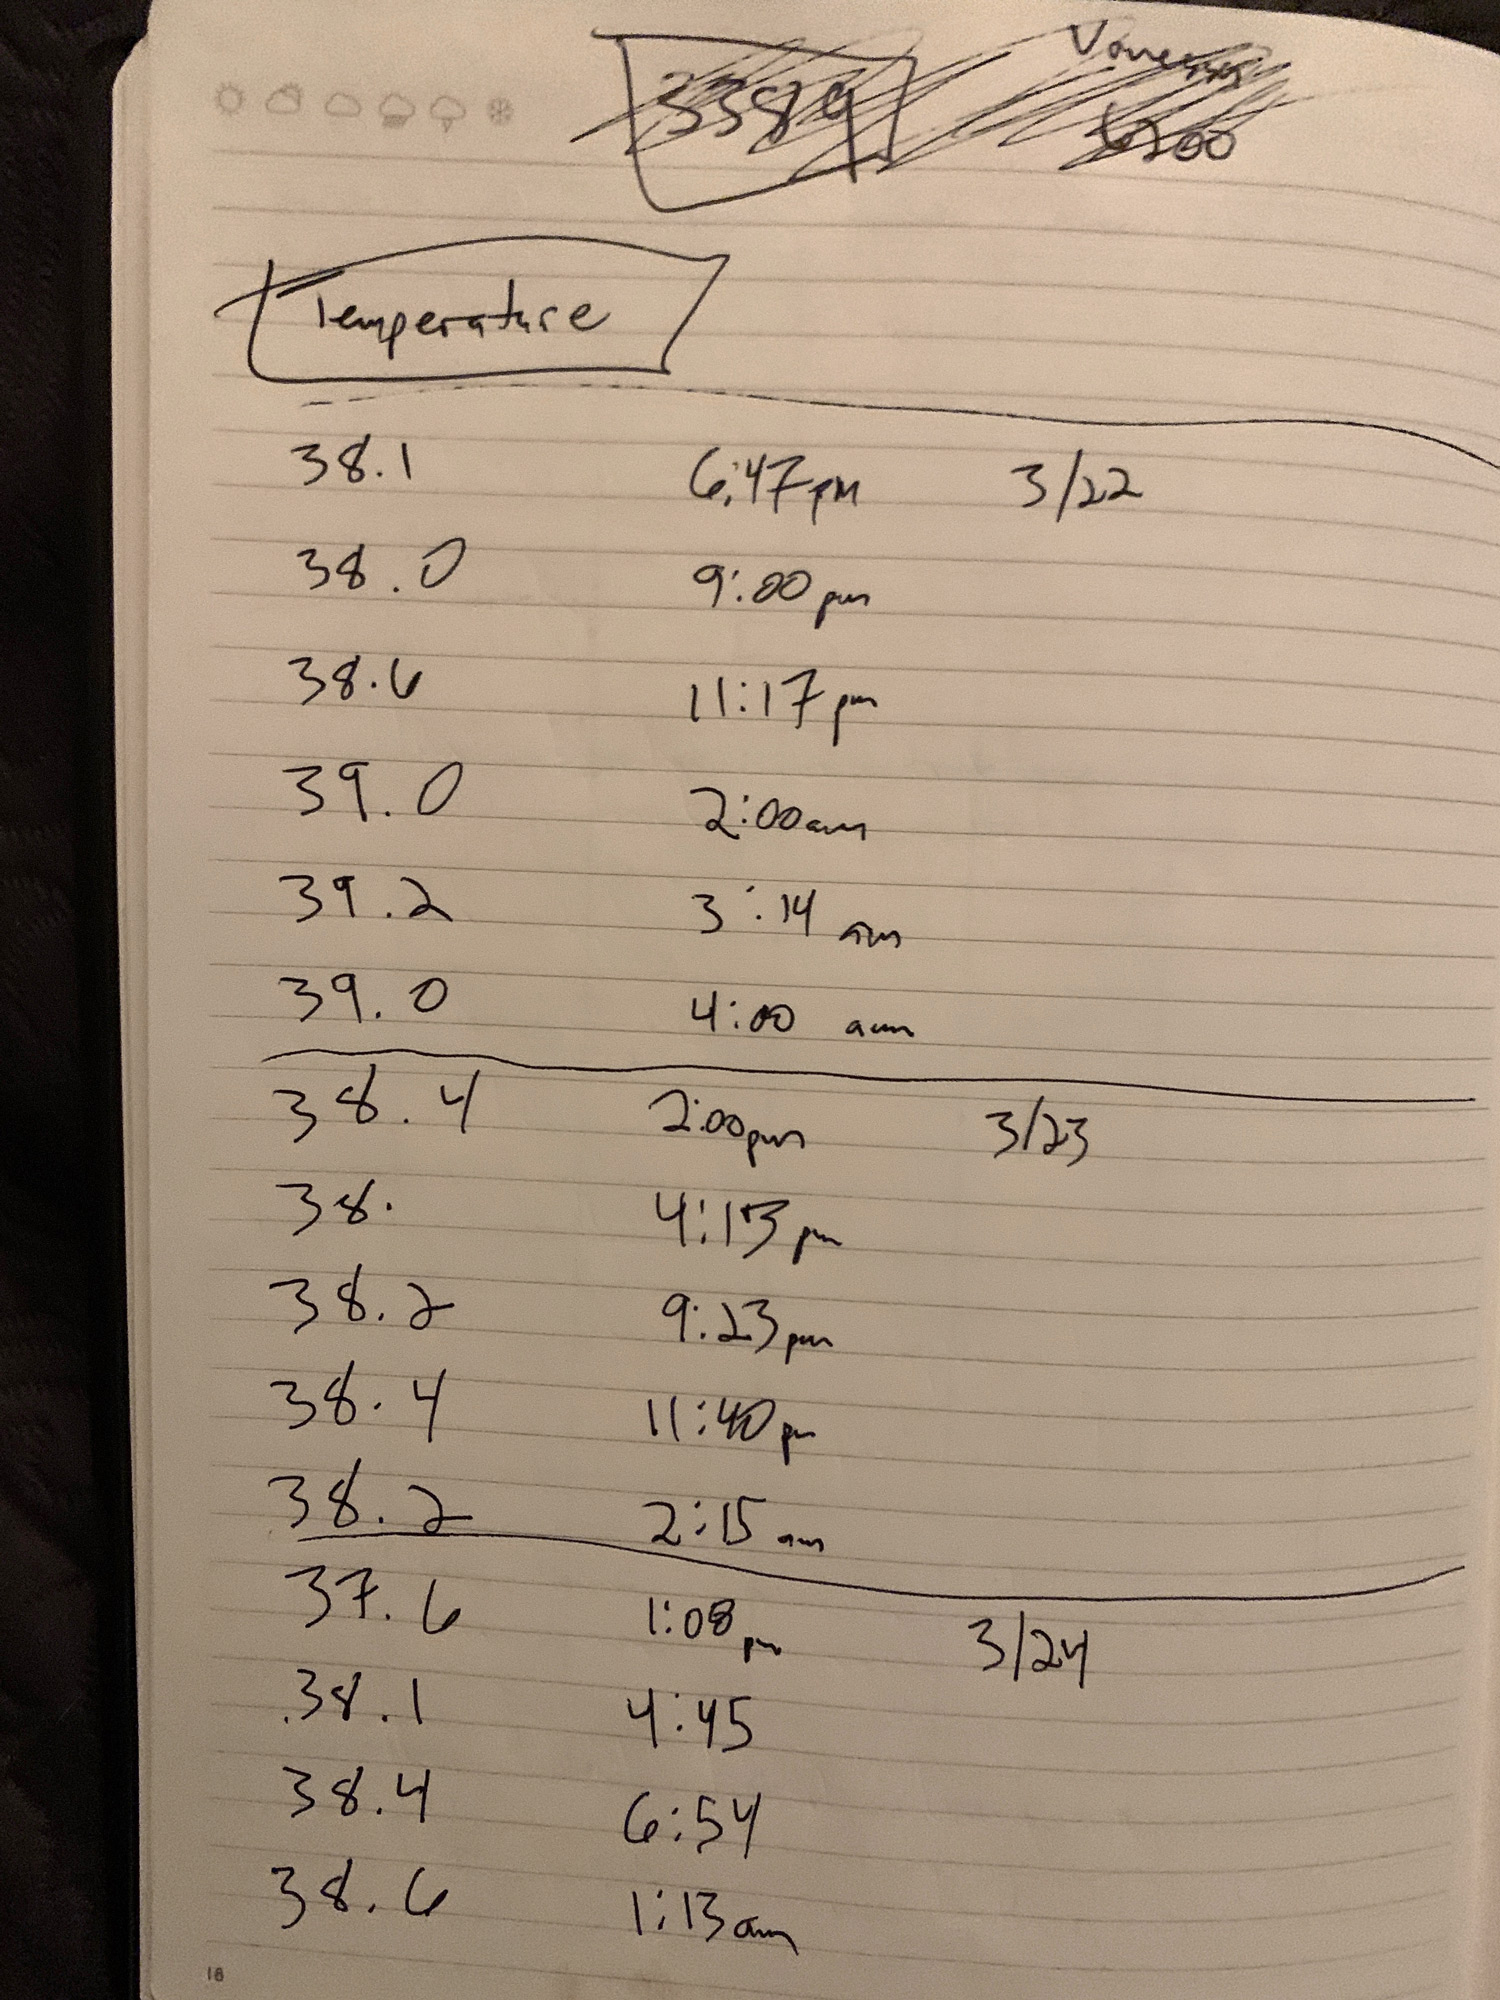 3389 Vanessa
6200
Temperature
38.1 6:47pm 3/22
38.0 9:00pm
38.6 11:17pm
39.0 2:00am
39.2 3:14 am
39.0 4:00 am
38.4 2:00pm 3/23
38. 4:13pm
38.2 9:23pm
38.4 11:40pm
38.2 2:15am
37.6 1:08pm 3/24
38.1 4:45
38.4 6:54
38.6 1:13am
18